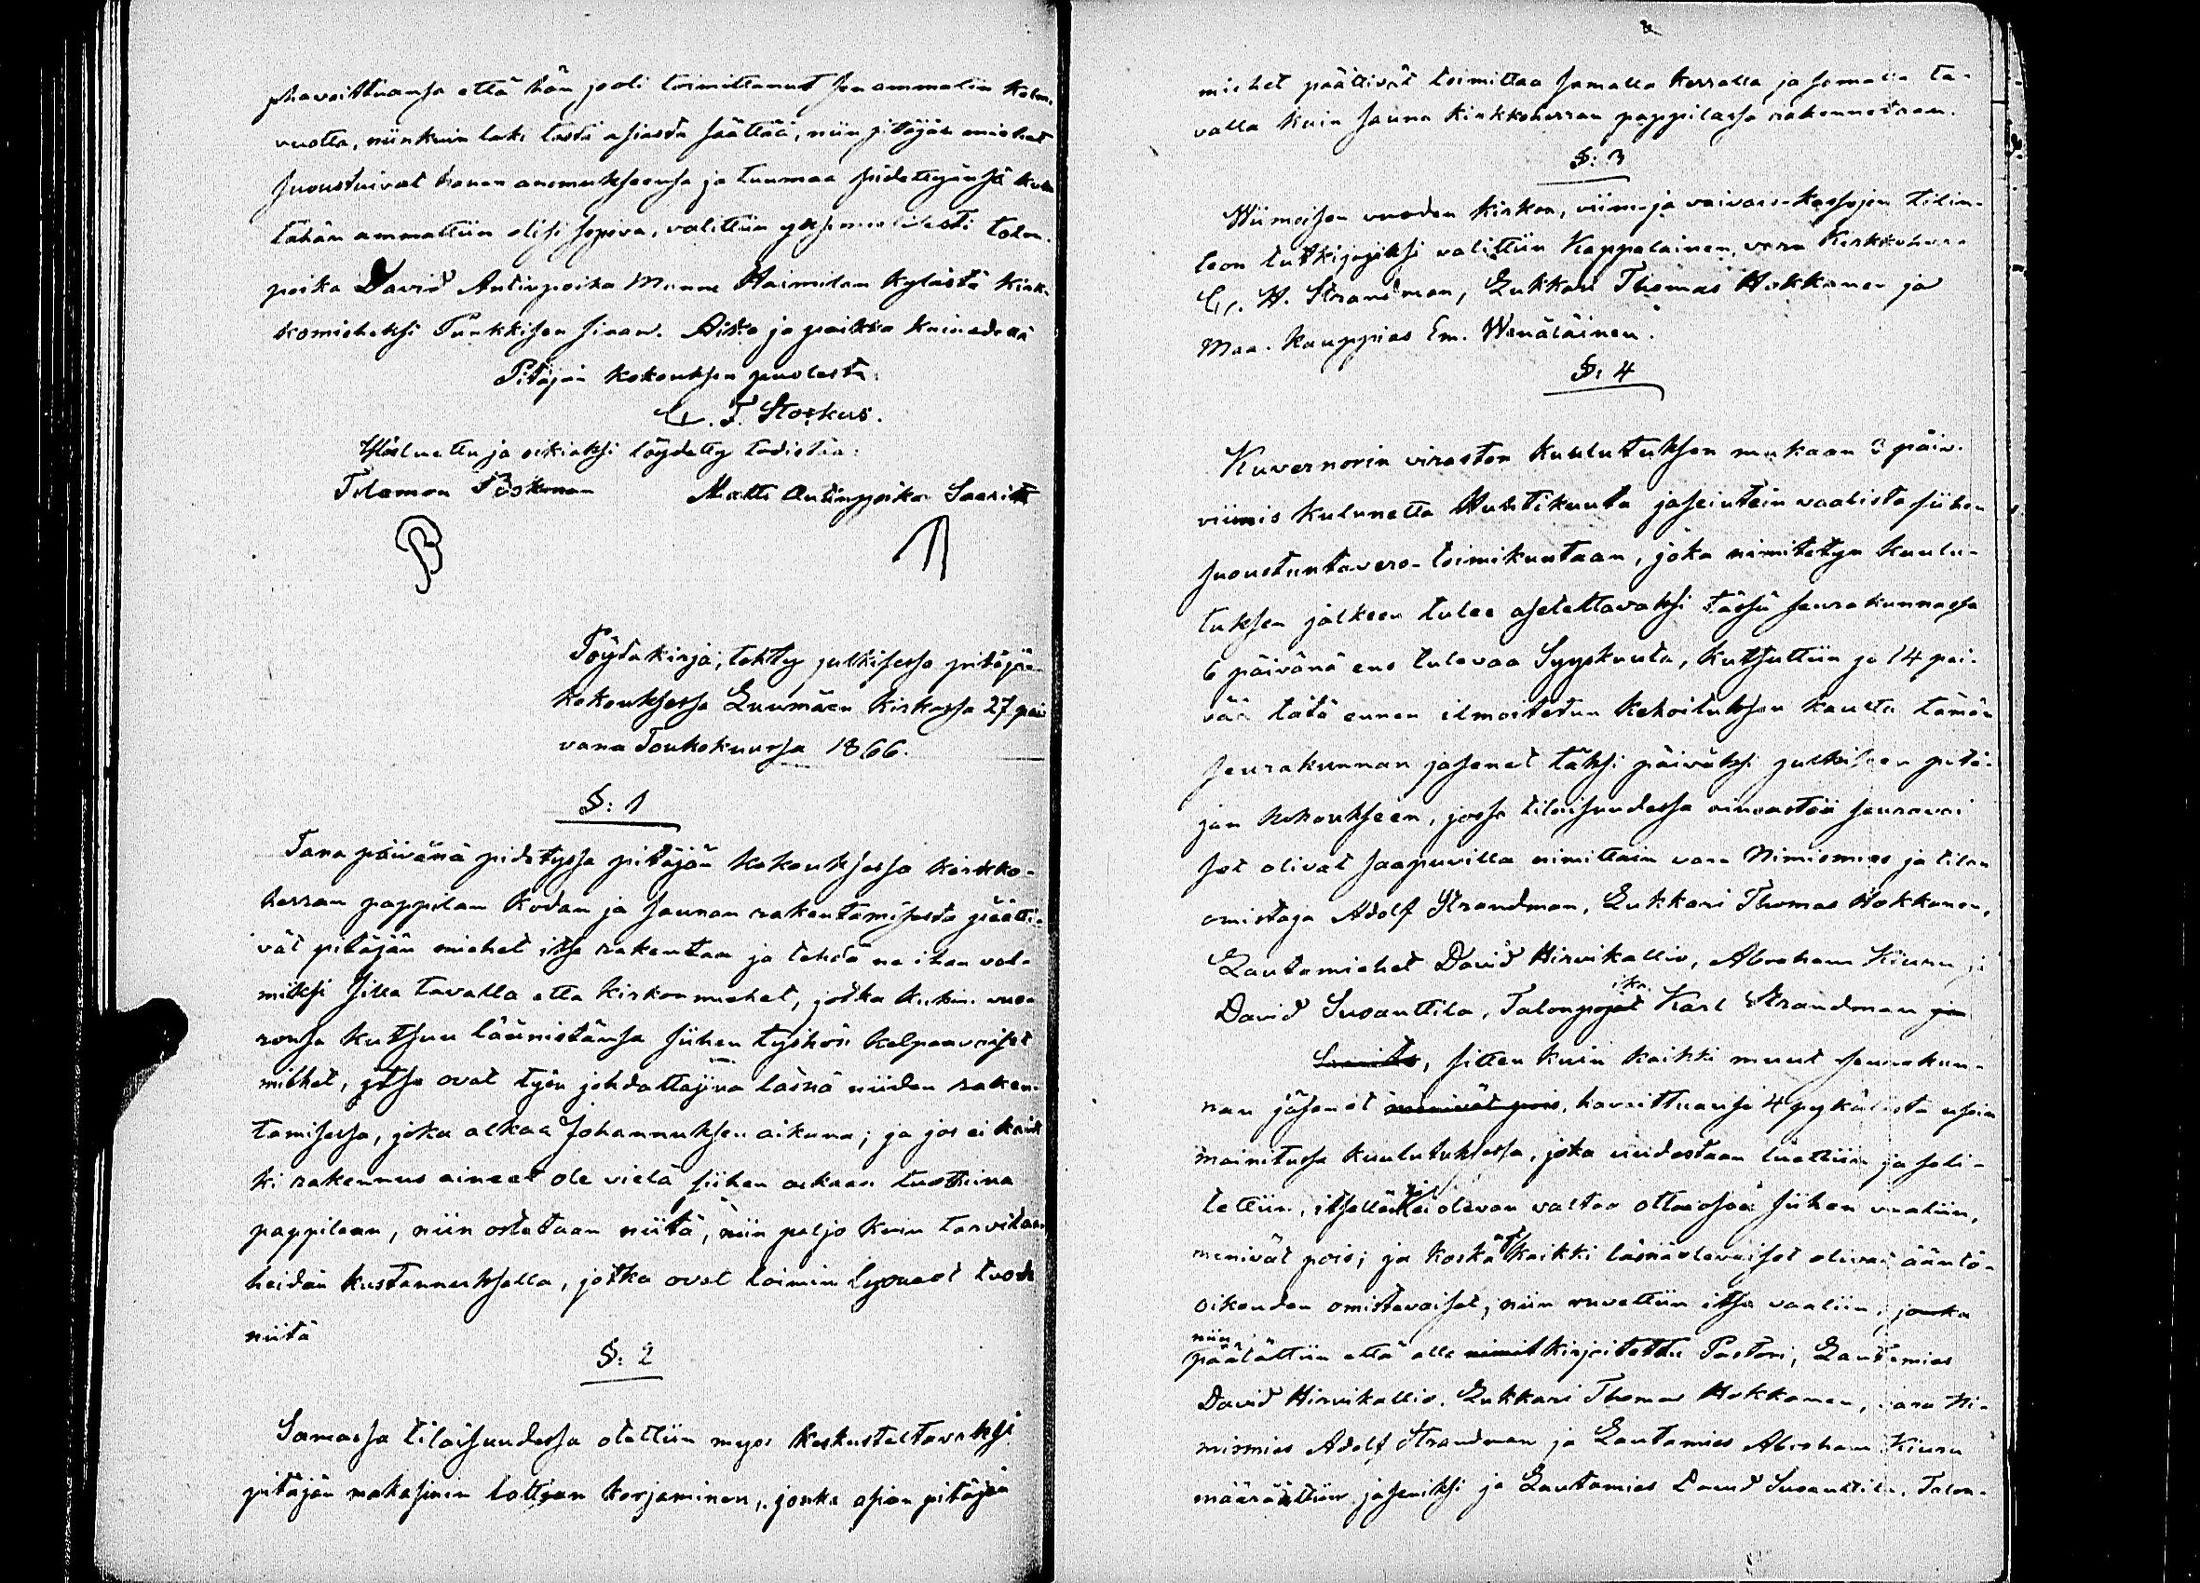 havaittuansa että hän jo oli toimittanut sen ammatin kolme
vuotta, niinkuin laki tästä asiasta säättää, niin pitäjän miehet
suoustuivat hänen anomukseensa ja tuumaa pidettyänsä kuka
tähän ammattiin olisi sopiva, valittiin yksimielisesti talon-
poika David Antinpoika Munne Haimilan kylästä kirk-
komieheksi Punkkisen siaan. Aika ja paikka kuin edellä
Pitäjän kokouksen puolesta:
C. F. Storkus.
Ylösluettu ja oikiaksi löydetty todistaa:
Filemon Pöskonen Matti Antinpoika Saarita
Pöytäkirja, tehty julkisessa pitäjän
kokouksessa Luumäen kirkossa 27 päi
vänä Toukokuussa 1866.
§: 1
Tänä päivänä pidetyssä pitäjän kokouksessa kirkko-
herran pappilan kodan ja saunan rakentamisesta päätti-
vät pitäjän miehet itse rakentaa ja tehdä ne ihan val-
miiksi sillä tavalla että kirkonmiehet, jotka kukin vuo-
ronsa kutsuu läänistänsä siihen työhön kelpaavaiset
miehet, itse ovat työn johdattajina läsnä niiden raken-
tamisessa, joka alkaa Johannuksen aikana; ja jos ei kaik
ki rakennus aineet ole vielä siihen aikaan tuottuina
pappilaan, niin ostetaan niitä, niin paljo kuin tarvitaan
heidän kustannuksella, jotka ovat laimin lyöneet tuoda
niitä
§: 2
Samassa tilaisuudessa otettiin myös keskusteltavaksi
pitäjän makasinin lattian korjaminen, jonka asian pitäjän
miehet päättivät toimittaa samalla kerralla ja samalla ta-
valla kuin sauna kirkkoherran pappilassa rakennetaan.
§: 3
Wiimeisen vuoden kirkon, viini- ja vaivais-kassojen tilin-
teon tutkijoiksi valittiin Kappalainen, vara Kirkkoherra
C. H. Strandman, Lukkari Thomas Hokkanen ja
Maa-kauppias Em. Wenäläinen.
§: 4
Kuvernörin viraston kuulutuksen mukaan 3 päiv.
viimis kulunetta Huhtikuuta jäseintein vaalista siihen
suoustuntavero-toimikuntaan, joka nimitetyn kuulu-
tuksen jälkeen tulee asetettavaksi tässä seurakunnassa
6 päivänä ens tulevaa Syyskuuta, kutsuttiin jo 14 päi-
vää tätä ennen ilmoitetun kehoituksen kautta tämän
seurakunnan jäsenet täksi päiväksi julkiseen pitä-
jän kokoukseen, jossa tilaisuudessa ainoastaan seuraavai
set olivat saapuvilla nimittäin vara Nimismies ja tilan
omistaja Adolf Strandman, Lukkari Thomas Hokkanen,
Lautamiehet David Hirvikallio, Abraham Kiuru ja
David Suoanttila, Talonpojat Karl Strandman ja
Saarita, sitten kuin kaikki muut seurakun-
nan jäsenet menivät pois, havaittuansa 4 pykälästä usein
mainitussa kuulutuksessa, joka uudestaan luettiin ja seli-
tettiin, itsellänsä ei olevan valtaa ottaa osaa siihen vaaliin,
menivät pois; ja koska kaikki läsnäolevaiset olivat ääntö-
oikeuden omistavaiset, niin ruvettiin itse vaaliin, jonka
niin
päätättiin että alle nimit kirjoitettu Pastori, Lautamies
David Hirvikallio, Lukkari Thomas Hokkanen, vara Ni-
mismies Adolf Strandman ja Lautamies Abraham Kiuru
määrättiin jäseniksi ja Lautamies David Suoanttila, Talon-